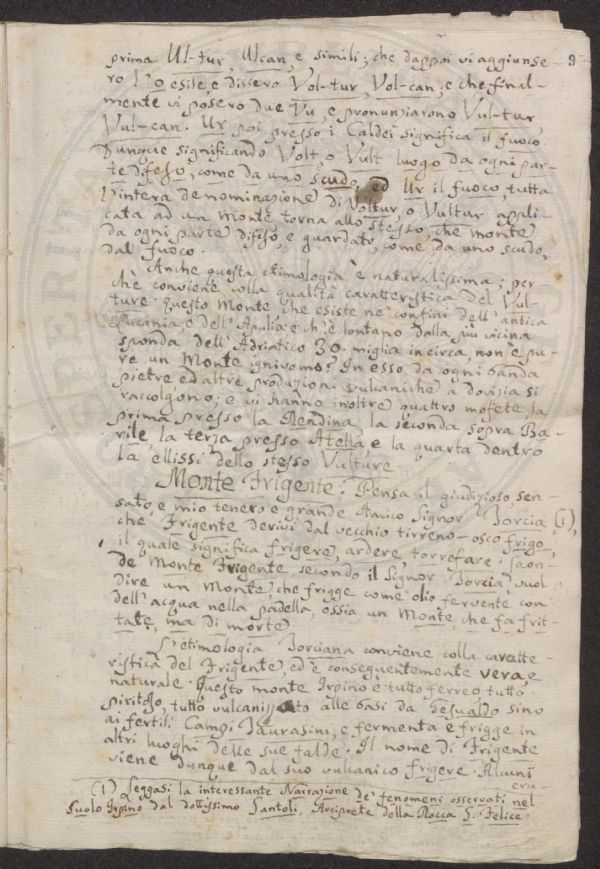 9
prima Ul-tur, Ulcan, e simili; che dappoi vi aggiunse-
ro l'o esile, e dissero Vol-tur, Vol-can, e che final-
mente vi posero due Vu, e pronunziarono Vul-tur,
Vul-can. Ur poi presso i Caldei significa il fuoco.
Dunque significando Volt, o Vult luogo da ogni par-
te difeso, come da uno scudo, ed Ur il fuoco, tutta
l'intera denominazione di Voltur, o Vultur appli-
cata ad un monte torna allo stesso, che monte
da ogni parte difeso, e guardato, come da uno scudo,
dal fuoco.
Anche questa etimologia è naturalissima; per-
chè conviene colla qualità caratteristica del Vul-
ture. Questo Monte che esiste ne' confini dell'antica
Lucania e dell'Apulia e ch'è lontano dalla più vicina
sponda dell'Adriatico 30. miglia in circa, non è pu-
re un Monte ignivomo? In esso da ogni banda
pietre ed altre produzioni vulcaniche a dovizia si
raccolgono; e vi hanno inoltre quattro mofete, la
prima presso la Rendina, la seconda sopra Ba-
rile, la terza presso Atella e la quarta dentro
la ellissi dello stesso Vulture.
Monte Frigente. Pensa il giudizioso, sen-
sato, e mio tenero e grande Amico Signor Jorcia (1),
che Frigente derivi dal vecchio tirreno-osco frigo,
il quale significa frigere, ardere, torrefare. Laon-
de Monte Frigente secondo il Signor Jorcia vuol
dire un Monte che frigge come olio fervente con
dell'acqua nella padella, ossia un Monte, che fa frit-
tate, ma di morte.
L'etimologia Jorciana conviene colla caratte-
ristica del Frigente, ed è conseguentemente vera, e
naturale. Questo monte Irpino è tutto ferreo, tutto
piritoso, tutto vulcanizzato alle basi da Gesualdo sino
ai fertili Campi Taurasini, e fermenta e frigge in
altri luoghi delle sue falde. Il nome di Frigente
viene dunque dal suo vulcanico frigere. Alcuni
cru-
(1) Leggasi la interessante Narrazione de' fenomeni osservati nel
Suolo Irpino dal dottissimo Santoli, Arciprete della Rocca S. Felice.